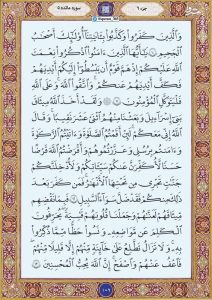 جزء ٦
سوره مائده ٥
وَالَّذِينَ كَفَرُوا وَكَذَّبُوا بِآيَاتِنَا أُولَٰئِكَ أَصْحَابُ
الْجَحِيمِ يَا أَيُّهَا الَّذِينَ آمَنُوا اذْكُرُوا نِعْمَتَ
اللَّهِ عَلَيْكُمْ إِذْ هَمَّ قَوْمٌ أَنْ يَبْسُطُوا إِلَيْكُمْ أَيْدِيَهُمْ
فَكَفَّ أَيْدِيَهُمْ عَنْكُمْ وَاتَّقُوا اللَّهَ وَعَلَى اللَّهِ
فَلْيَتَوَكَّلِ الْمُؤْمِنُونَ وَلَقَدْ أَخَذَ اللَّهُ مِيثَاقَ
بَنِي إِسْرَائِيلَ وَبَعَثْنَا مِنْهُمُ اثْنَيْ عَشَرَ نَقِيبًا وَقَالَ
اللَّهُ إِنِّي مَعَكُمْ لَئِنْ أَقَمْتُمُ الصَّلَاةَ وَآتَيْتُمُ الزَّكَاةَ
وَآمَنْتُمْ بِرُسُلِي وَعَزَّرْتُمُوهُمْ وَأَقْرَضْتُمُ اللَّهَ قَرْضًا
حَسَنًا لَأُكَفِّرَنَّ عَنْكُمْ سَيِّئَاتِكُمْ وَلَأُدْخِلَنَّكُمْ
جَنَّاتٍ تَجْرِي مِنْ تَحْتِهَا الْأَنْهَارُ فَمَنْ كَفَرَ بَعْدَ
ذَٰلِكَ مِنْكُمْ فَقَدْ ضَلَّ سَوَاءَ السَّبِيلِ فَبِمَا نَقْضِهِمْ
مِيثَاقَهُمْ لَعَنَّاهُمْ وَجَعَلْنَا قُلُوبَهُمْ قَاسِيَةً يُحَرِّفُونَ
الْكَلِمَ عَنْ مَوَاضِعِهِ وَنَسُوا حَظًّا مِمَّا ذُكِّرُوا
بِهِ وَلَا تَزَالُ تَطَّلِعُ عَلَىٰ خَائِنَةٍ مِنْهُمْ إِلَّا قَلِيلًا مِنْهُمْ
فَاعْفُ عَنْهُمْ وَاصْفَحْ إِنَّ اللَّهَ يُحِبُّ الْمُحْسِنِينَ
١٠٩